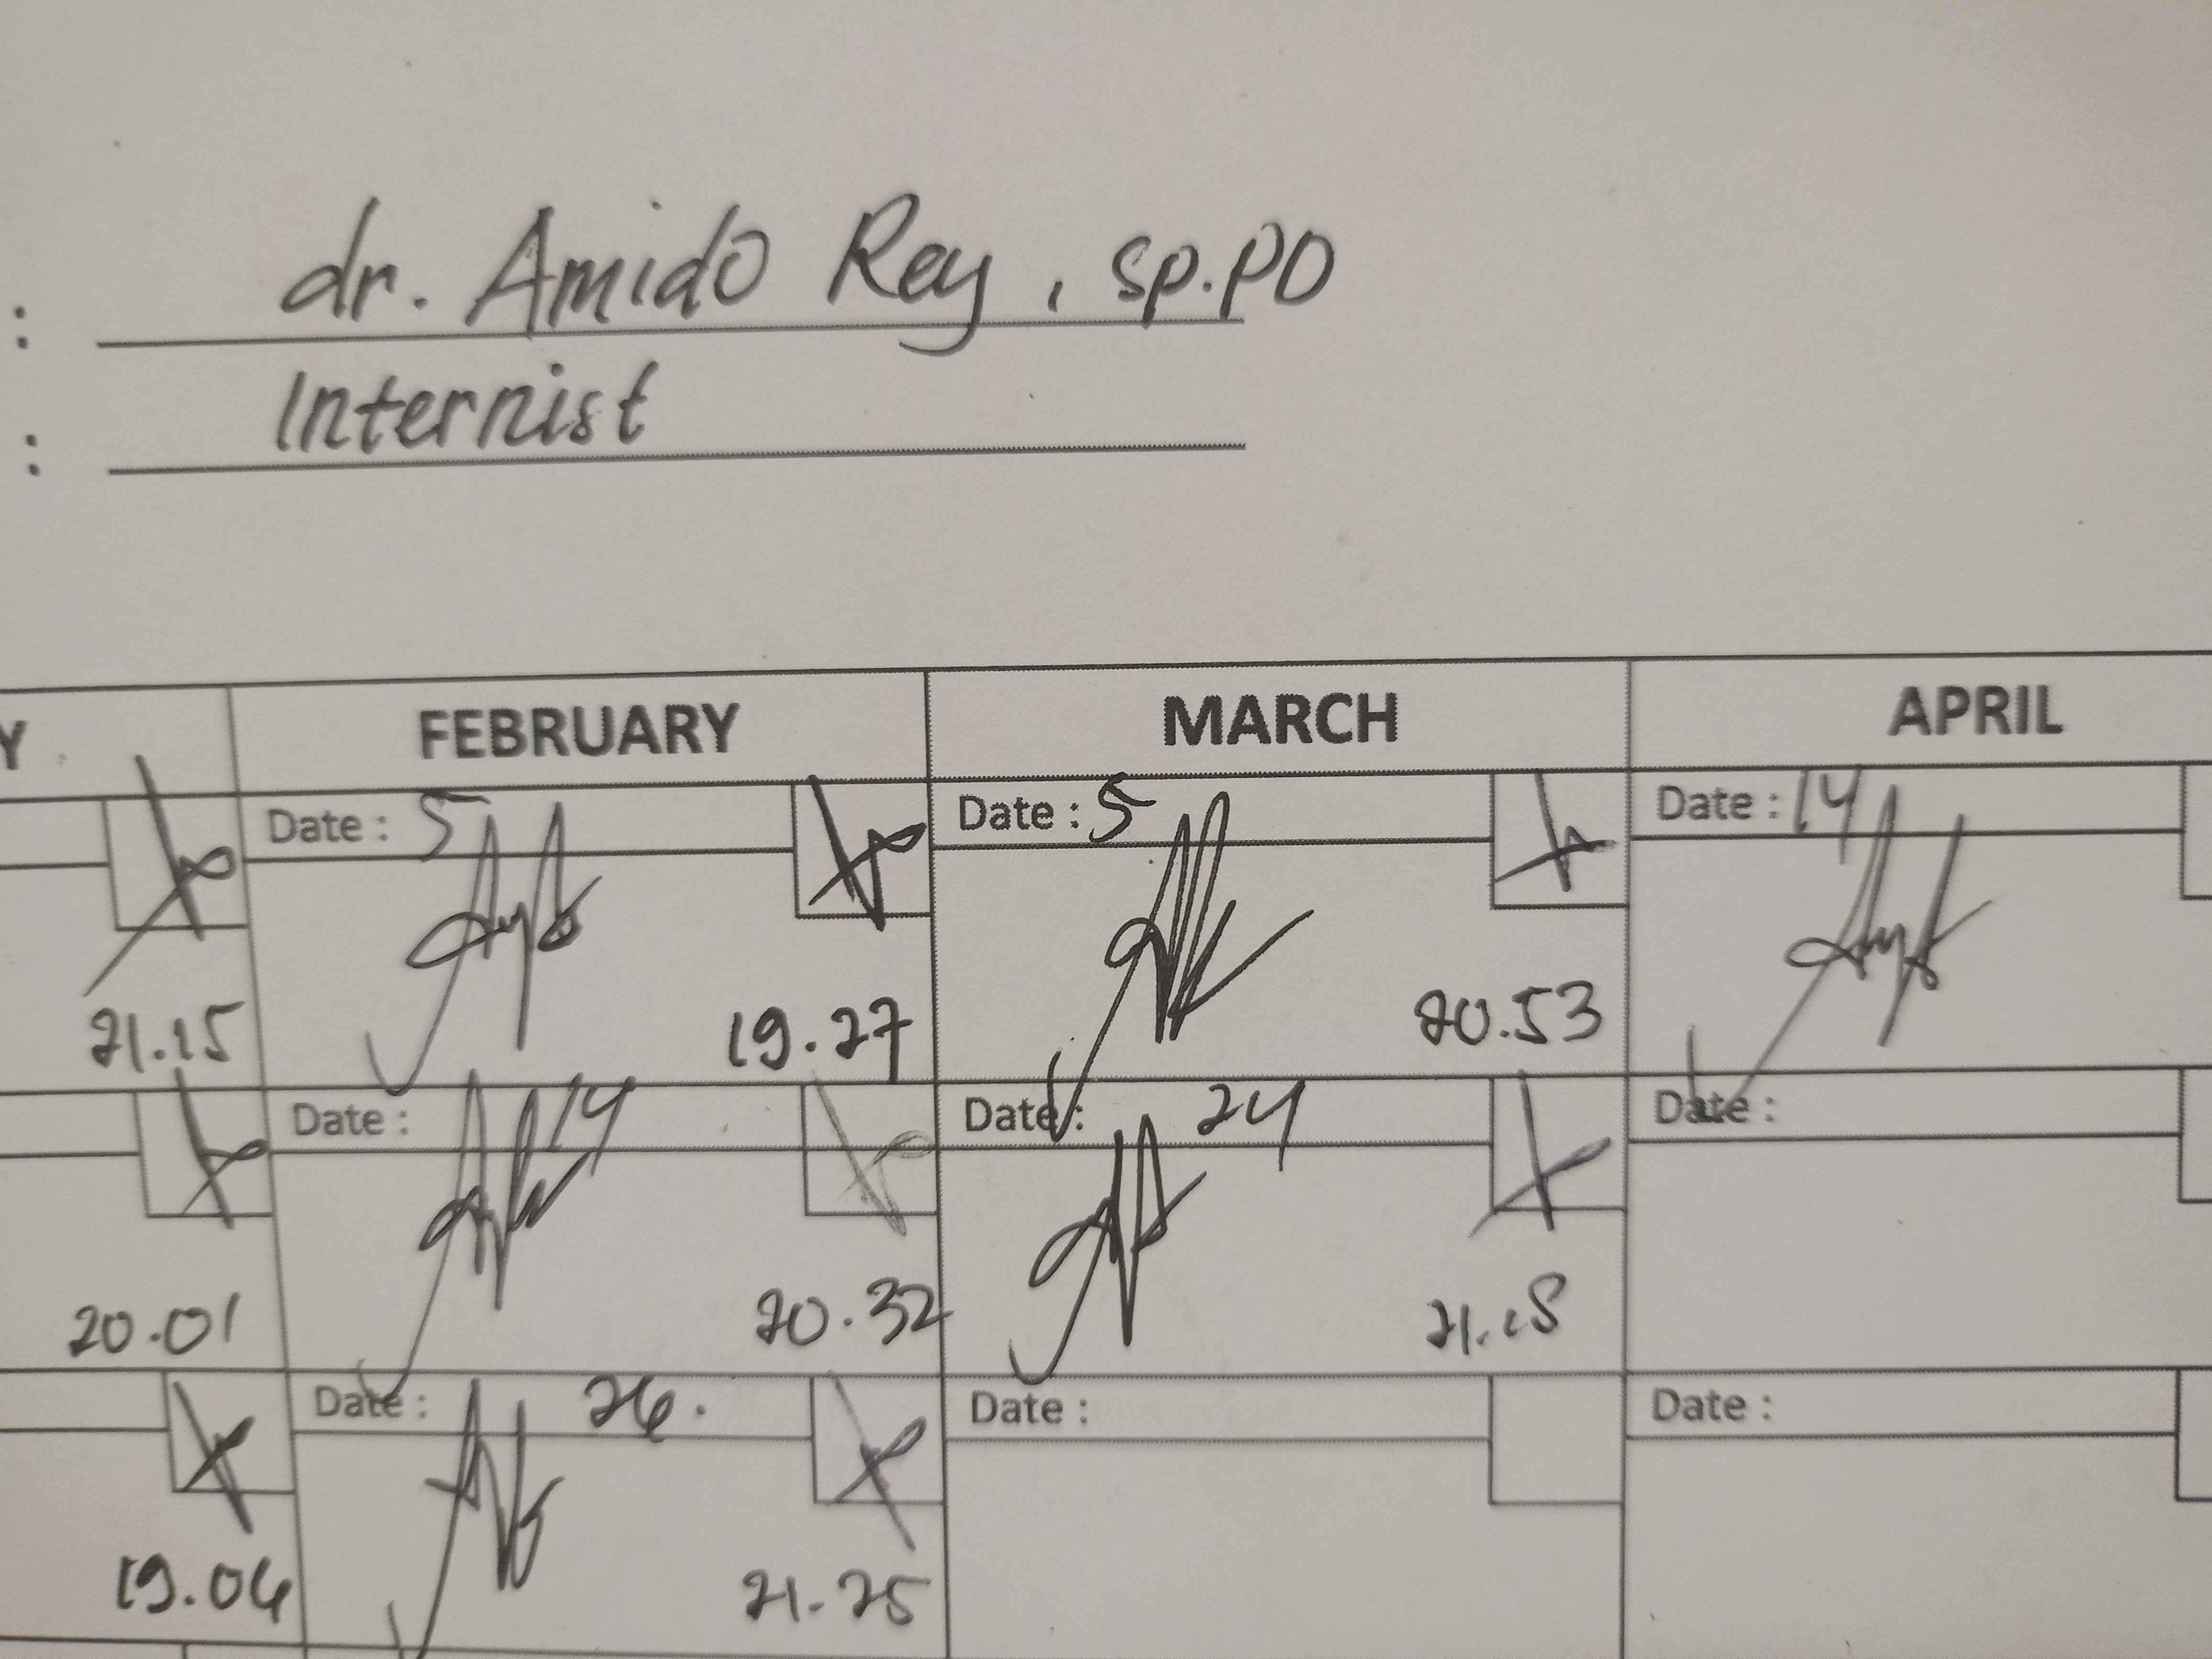 : dr. Amido Rey, sp.PD
: Internist
Y FEBRUARY MARCH APRIL
Date : 5 Date : 5 Date : 14
21.15 19.27 20.53
Date : 14 Date : 24 Date :
20.01 20.32 21.15
Date : 26. Date : Date :
19.06 21.25